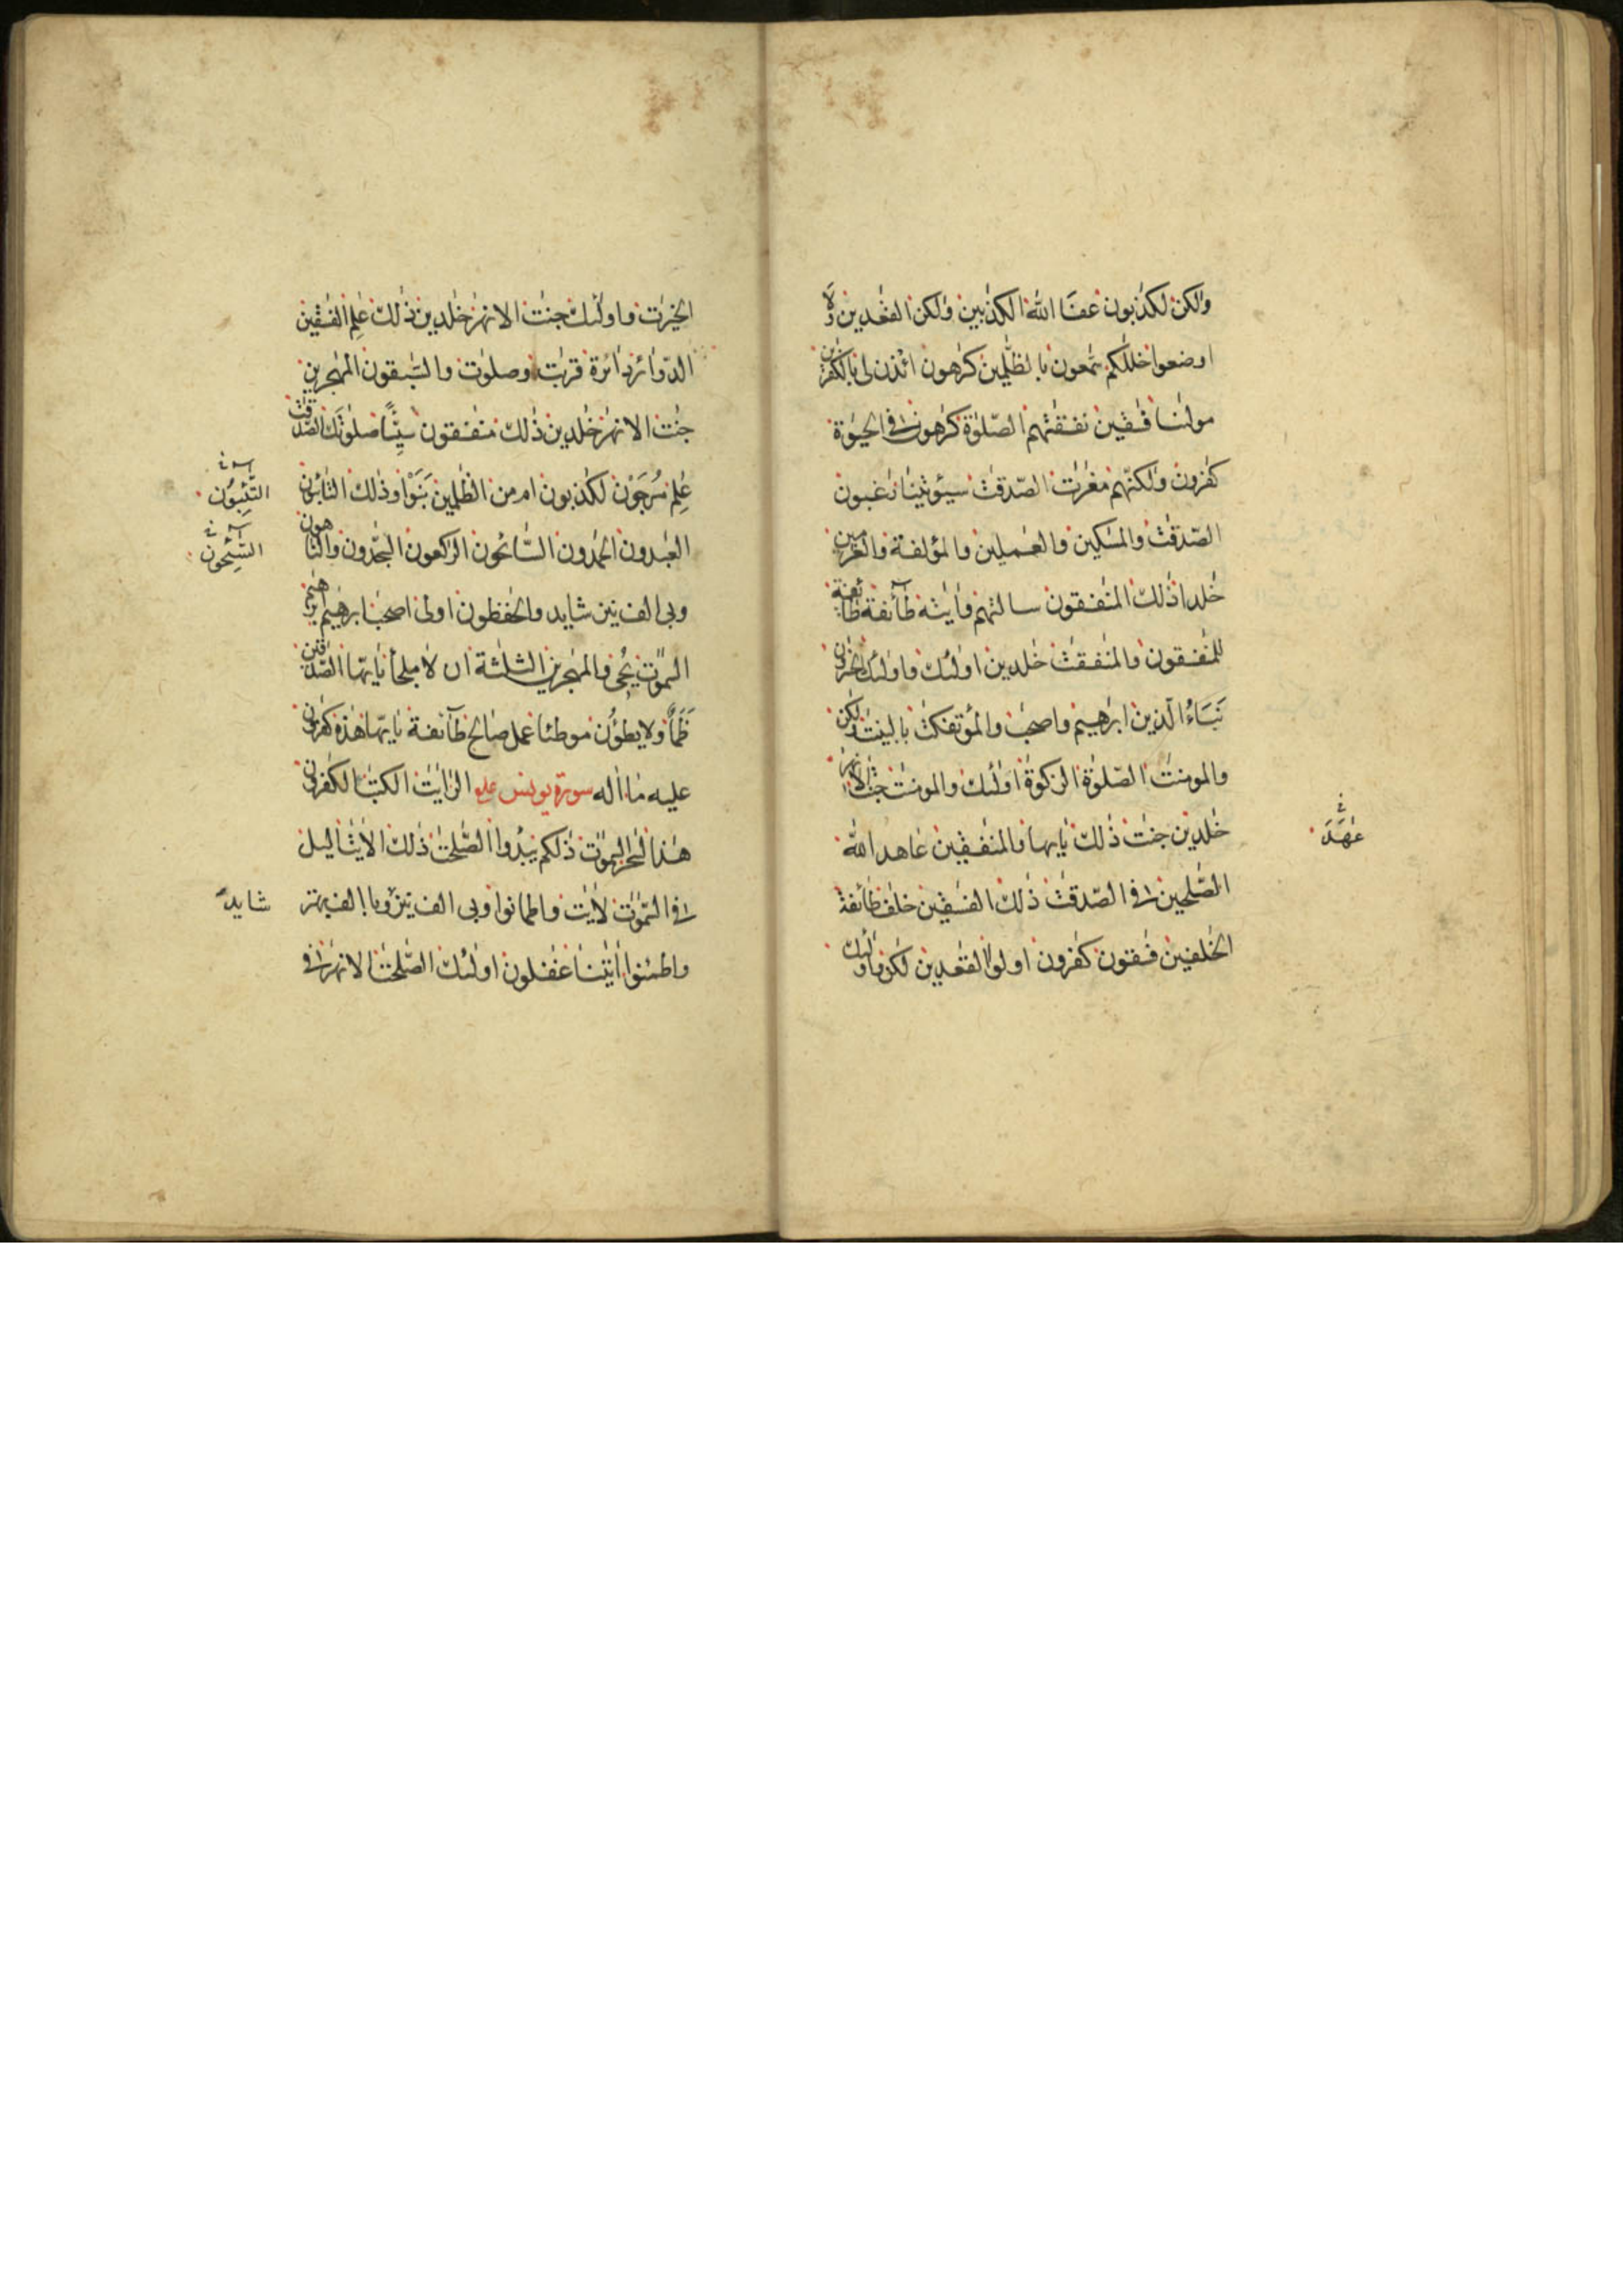 ولكن لكذبون عفا الله الكذبين ولكن القعدين ولا
اوضعوا خللكم سمعون بالظلمين كرهون ائذن لى بالكفرين
مولنا فسقين نفقتهم الصلوة كرهون فى الحيوة
كفرون ولكنهم مغرت الصدقت سيؤتينا رغبون
الصدقت والمسكين والعملين والمؤلفة والغرمين
خلدا ذلك المنفقون سالتهم وايته طآئفة طائفة
المنفقون والمنفقت خلدين اولئك واولئك الخسرون
نباء الذين ابرهيم واصحب والمؤتفكت بالبينت ولكن
والمومنت الصلوة الزكوة اولئك والمومنت جنت الانهر
خلدين جنت ذلك يايها والمنفقين عاهد الله
عهد
الصلحين فى الصدقت ذلك الفسقين خلف طائفة
الخلفين فسقون كفرون اولوا القعدين لكن واولئك
الخيرت واولئك جنت الانهر خلدين ذلك علم الفسقين
الدوائر دائرة قربت وصلوت والسبقون المهجرين
جنت الانهر خلدين ذلك منفقون سيئا صلوتك الصدقت
علم مرجون لكذبون ام من الظلمين بنوا وذلك التائبون
التئبون
العبدون الحمدون السائحون الركعون السجدون والناهون
السئحون
وبى الف نيز شايد والحفظون اولى اصحب ابرهيم ابرهيم
السموت يحى والمهجرين الثلثة ان لا ملجا يايها الصدقين
ظمأ ولا يطؤن موطئا عمل صالح طآئفة يايها هذه كفرون
عليه ما اله سورة يونس علم الر ايت الكتب الكفرون
هذا لسحر السموت ذلكم يبدوا الصلحت ذلك الايت اليل
فى السموت لايت واطمانوا وبى الف نيز وبا الف بهتر
شايد
واطمئنوا ايتنا غفلون اولئك الصلحت الانهر فى